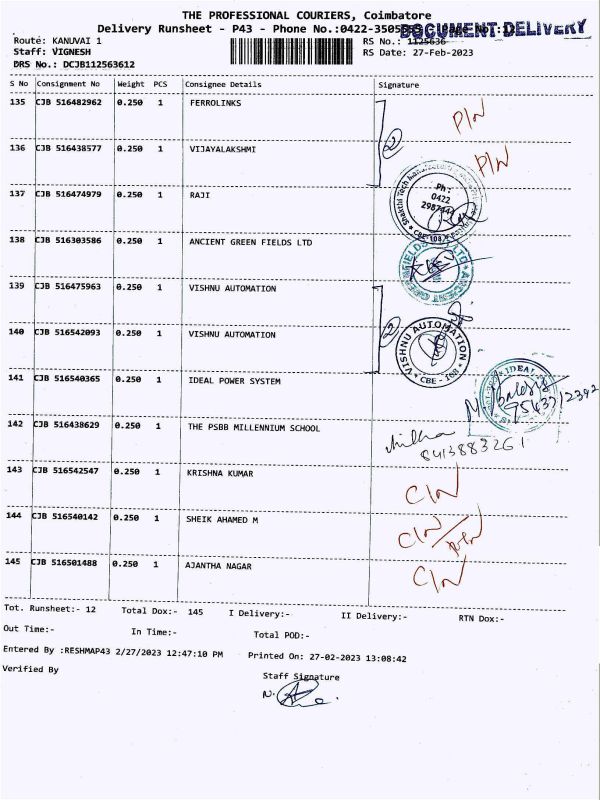 THE PROFESSIONAL COURIERS, Coimbatore
Delivery Runsheet - P43 - Phone No.:0422-3505
DOCUMENT DELIVERY
Route: KANUVAI 1
RS No.: 1125636
Staff: VIGNESH
RS Date: 27-Feb-2023
DRS No.: DCJB112563612
S No Consignment No Weight PCS Consignee Details Signature
135 CJB 516482962 0.250 1 FERROLINKS
P/N
136 CJB 516438577 0.250 1 VIJAYALAKSHMI
P/N
137 CJB 516474979 0.250 1 RAJI
Ph :
0422
138 CJB 516303586 0.250 1 ANCIENT GREEN FIELDS LTD
139 CJB 516475963 0.250 1 VISHNU AUTOMATION
140 CJB 516542093 0.250 1 VISHNU AUTOMATION
VISHNU AUTOMATION
CBE - 108
141 CJB 516540365 0.250 1 IDEAL POWER SYSTEM
IDEAL
142 CJB 516438629 0.250 1 THE PSBB MILLENNIUM SCHOOL
8413883261
143 CJB 516542547 0.250 1 KRISHNA KUMAR
C/N
144 CJB 516540142 0.250 1 SHEIK AHAMED M
C/N
145 CJB 516501488 0.250 1 AJANTHA NAGAR
C/N
Tot. Runsheet:- 12 Total Dox:- 145 I Delivery:- II Delivery:- RTN Dox:-
Out Time:- In Time:- Total POD:-
Entered By :RESHMAP43 2/27/2023 12:47:10 PM Printed On: 27-02-2023 13:08:42
Verified By
Staff Signature